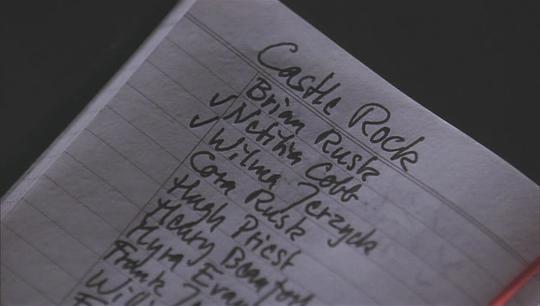 Castle Rock
Brian Rusk
✓ Netitia Cobb
✓ Wilma Jerzyck
Cora Rusk
Hugh Priest
Henry Beaufort
Myra Evan
Frank
Willi